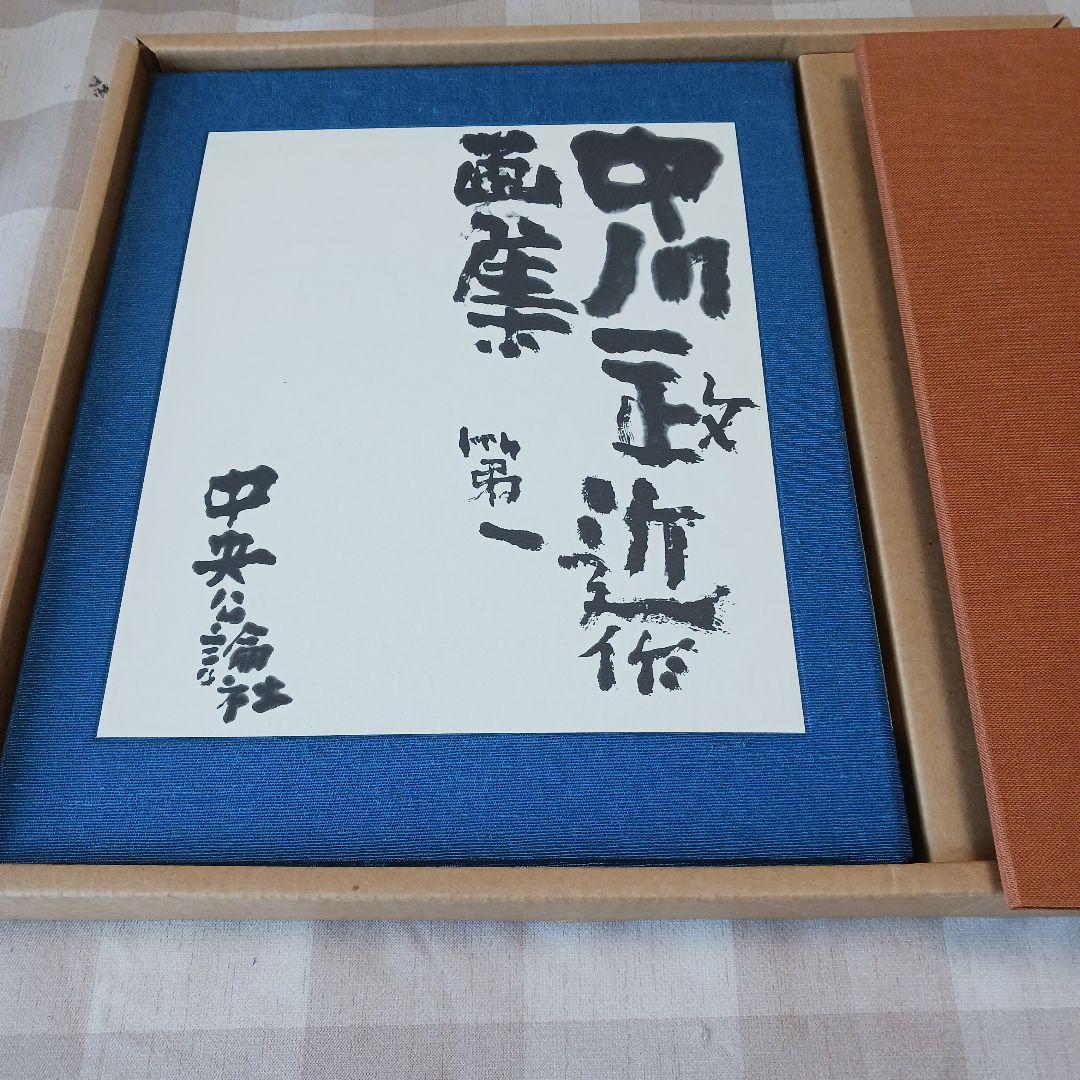 中川一政近作
画集 第一
中央公論社